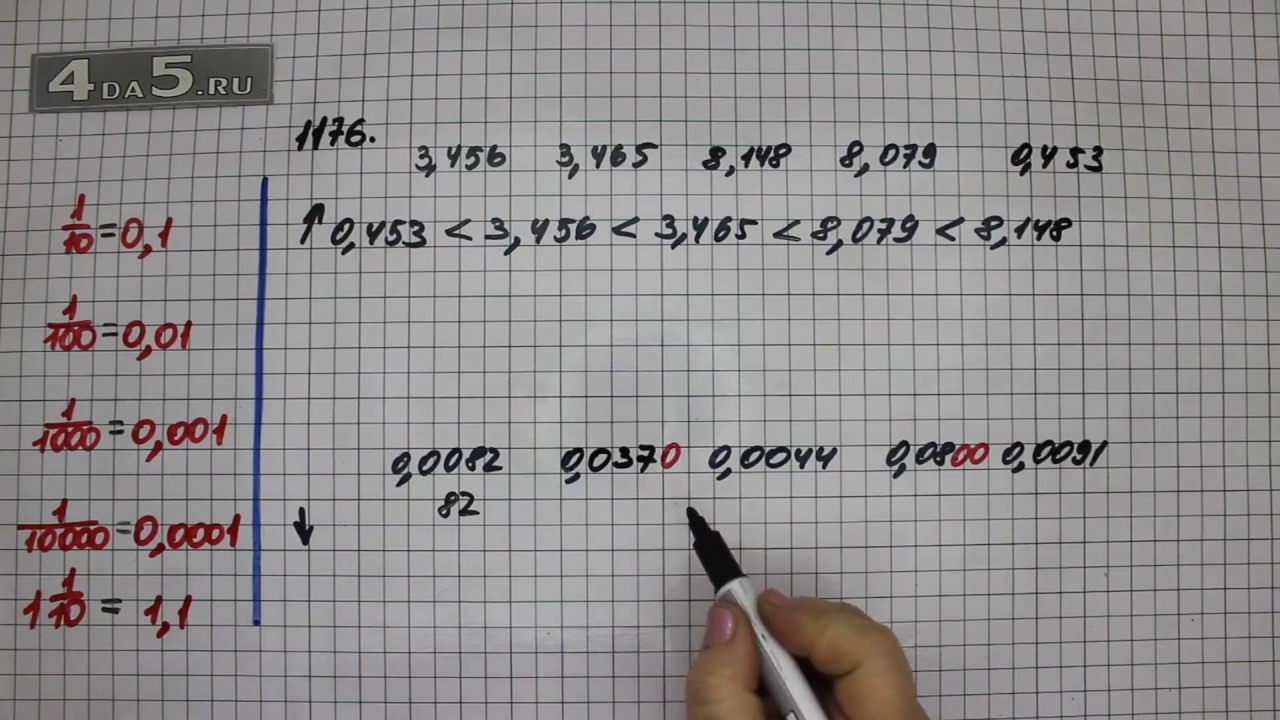 4DA5.RU
1176.
3,456 3,465 8,148 8,079 0,453
↑ 0,453 < 3,456 < 3,465 < 8,079 < 8,148
1/10 = 0,1
1/100 = 0,01
1/1000 = 0,001
1/10000 = 0,0001
1 1/10 = 1,1
0,0082 0,0370 0,0044 0,0800 0,0091
82
↓